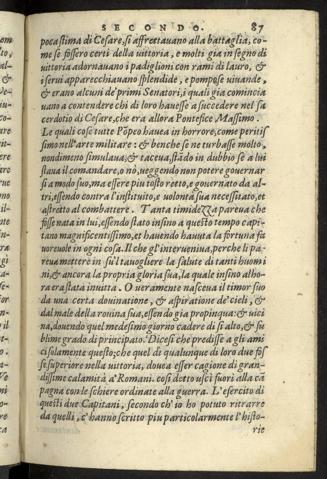 SECONDO. 87
poca stima di Cesare, si affrettauano alla battaglia, co-
me se fossero certi della uittoria, e molti gia in segno di
uittoria adornauano i padiglioni con rami di lauro, &
i serui apparecchiauano splendide, e pompose uiuande,
& erano alcuni de' primi Senatori, i quali gia comincia
uano a contendere chi di loro hauesse a succedere nel sa
cerdotio di Cesare, che era allora Pontefice Massimo.
Le quali cose tutte Põpeo hauea in horrore, come peritis
simo nell'arte militare: & benche se ne turbasse molto,
nondimeno simulaua; & taceua, stãdo in dubbio se a lui
staua il comandare, o nò, ueggendo non potere gouernar
si a modo suo, ma essere piu tosto retto, e gouernato da al-
tri, essendo contra l'instituto, e uolontà sua necessitato, et
astretto al combattere. Tanta timidezza pareua che
fosse nata in lui, essendo stato insino a questo tempo capi-
tano magnificentissimo, et hauendo hauuta la fortuna fa
uoreuole in ogni cosa. Il che gl'interueniua, perche li pa-
reua mettere in su'l tauogliere la salute di tanti huomi
ni, & ancora la propria gloria sua, la quale insino alho-
ra era stata inuitta. O ueramente nasceua il timor suo
da una certa diuinatione, & aspiratione de' cieli, &
dal male della rouina sua, essendo gia propinqua: & uici
na, douendo quel medesimo giorno cadere di sì alto, & su
blime grado di principato. Dicesi che predisse a gli ami
ci solamente questo; che qual di qualunque di loro due fos
se superiore nella uittoria, douea esser cagione di gran-
dissime calamità a' Romani. così detto uscì fuori alla cã
pagna con le schiere ordinate alla guerra. L'esercito di
questi due Capitani, secondo ch'io ho potuto ritrarre
da quelli, c'hanno scritto piu particolarmente l'histo-
rie